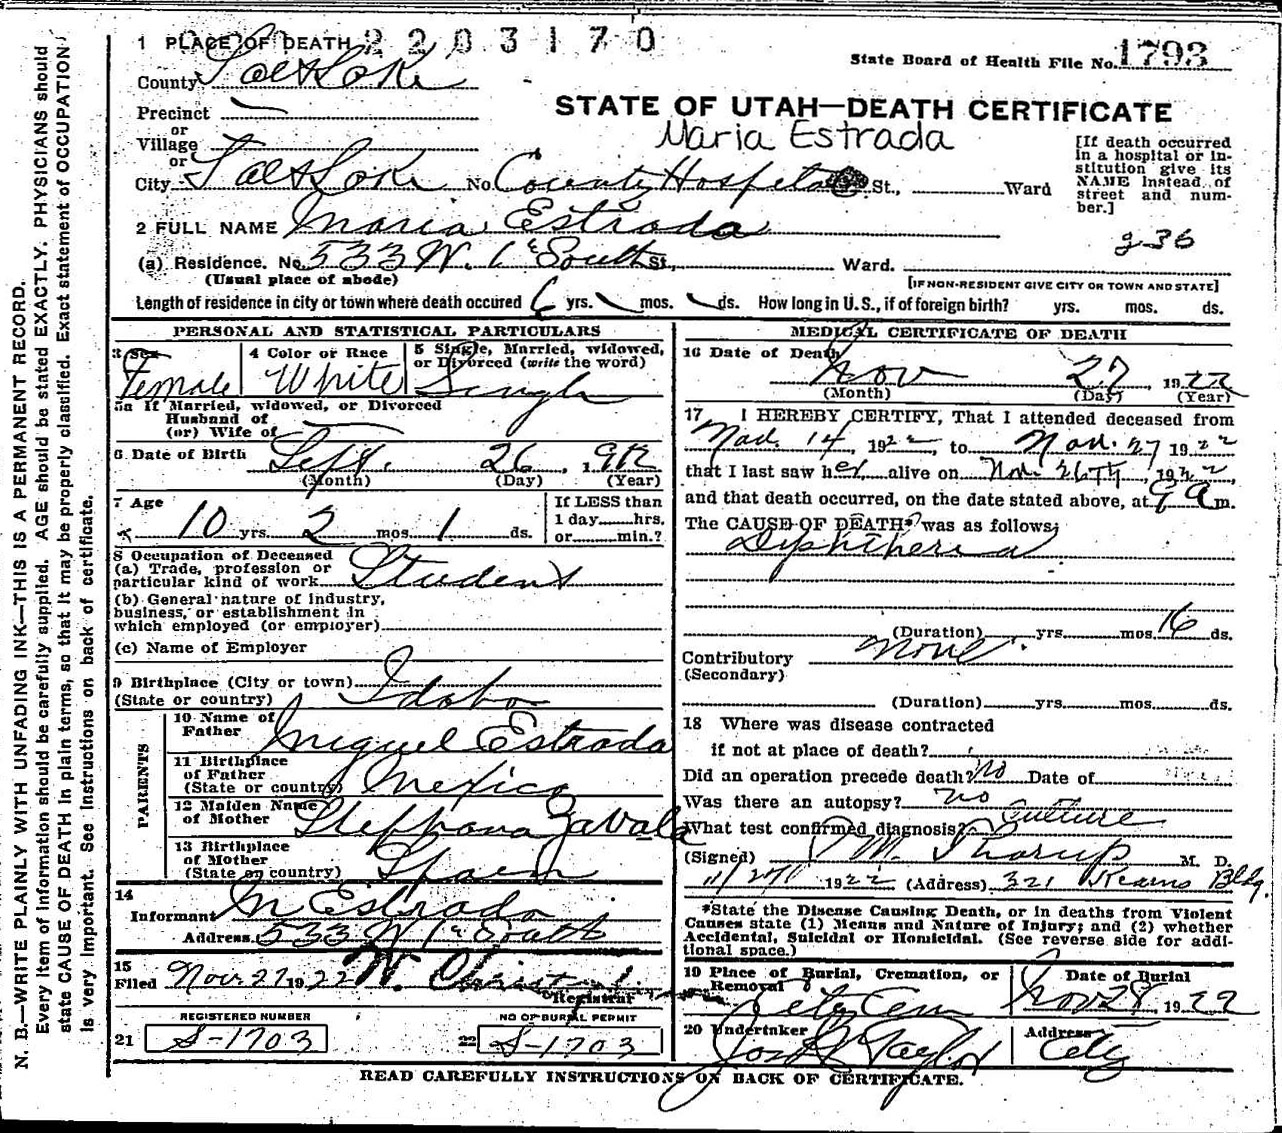 1 PLACE OF DEATH 2203170
State Board of Health File No. 1793
County Salt Lake
STATE OF UTAH—DEATH CERTIFICATE
Precinct —
or
Village
or
Maria Estrada
[If death occurred in a hospital or institution give its NAME instead of street and number.]
City Salt Lake No. County Hospital St., Ward
2 FULL NAME Maria Estrada
236
(a) Residence. No. 533 W. 1st South St., Ward.
(Usual place of abode) [IF NON-RESIDENT GIVE CITY OR TOWN AND STATE]
Length of residence in city or town where death occured 6 yrs. mos. ds. How long in U.S., if of foreign birth? yrs. mos. ds.
PERSONAL AND STATISTICAL PARTICULARS
3 Sex Female
4 Color or Race White
5 Single, Married, widowed, or Divorced (write the word) Single
5a If Married, widowed, or Divorced
Husband of
(or) Wife of
6 Date of Birth Sept. 26, 1912
(Month) (Day) (Year)
7 Age 10 yrs. 2 mos. 1 ds.
If LESS than
1 day......hrs.
or......min.?
8 Occupation of Deceased
(a) Trade, profession or
particular kind of work Student
(b) General nature of industry,
business, or establishment in
which employed (or employer)
(c) Name of Employer
9 Birthplace (City or town)
(State or country) Idaho
PARENTS
10 Name of Father Miguel Estrada
11 Birthplace of Father (State or country) Mexico
12 Maiden Name of Mother Stephana Zavala
13 Birthplace of Mother (State or country) Spain
14 Informant M Estrada
Address 533 W 1st South
15 Filed Nov. 27 1922 W. Christ
Registrar
REGISTERED NUMBER
21 S-1703
NO OF BURIAL PERMIT
22 S-1703
MEDICAL CERTIFICATE OF DEATH
16 Date of Death Nov 27, 1922
(Month) (Day) (Year)
17 I HEREBY CERTIFY, That I attended deceased from
Nov. 14, 1922, to Nov. 27 1922
that I last saw her alive on Nov. 26th, 1922,
and that death occurred, on the date stated above, at 9 a m.
The CAUSE OF DEATH* was as follows;
Diphtheria
(Duration) yrs. mos. 16 ds.
Contributory None.
(Secondary)
(Duration) yrs. mos. ds.
18 Where was disease contracted
if not at place of death?
Did an operation precede death? No Date of
Was there an autopsy? no
What test confirmed diagnosis? Culture
(Signed) P M. Tharup M. D.
1922 (Address) 321 Kearns Bldg.
*State the Disease Causing Death, or in deaths from Violent
Causes state (1) Means and Nature of Injury; and (2) whether
Accidental, Suicidal or Homicidal. (See reverse side for additional space.)
19 Place of Burial, Cremation, or Removal City Cem
Date of Burial Nov 28, 1922
20 Undertaker Jos. Taylor
Address City
READ CAREFULLY INSTRUCTIONS ON BACK OF CERTIFICATE.
N. B.—WRITE PLAINLY WITH UNFADING INK—THIS IS A PERMANENT RECORD.
Every item of information should be carefully supplied. AGE should be stated EXACTLY. PHYSICIANS should
state CAUSE OF DEATH in plain terms, so that it may be properly classified. Exact statement of OCCUPATION
is very important. See instructions on back of certificate.